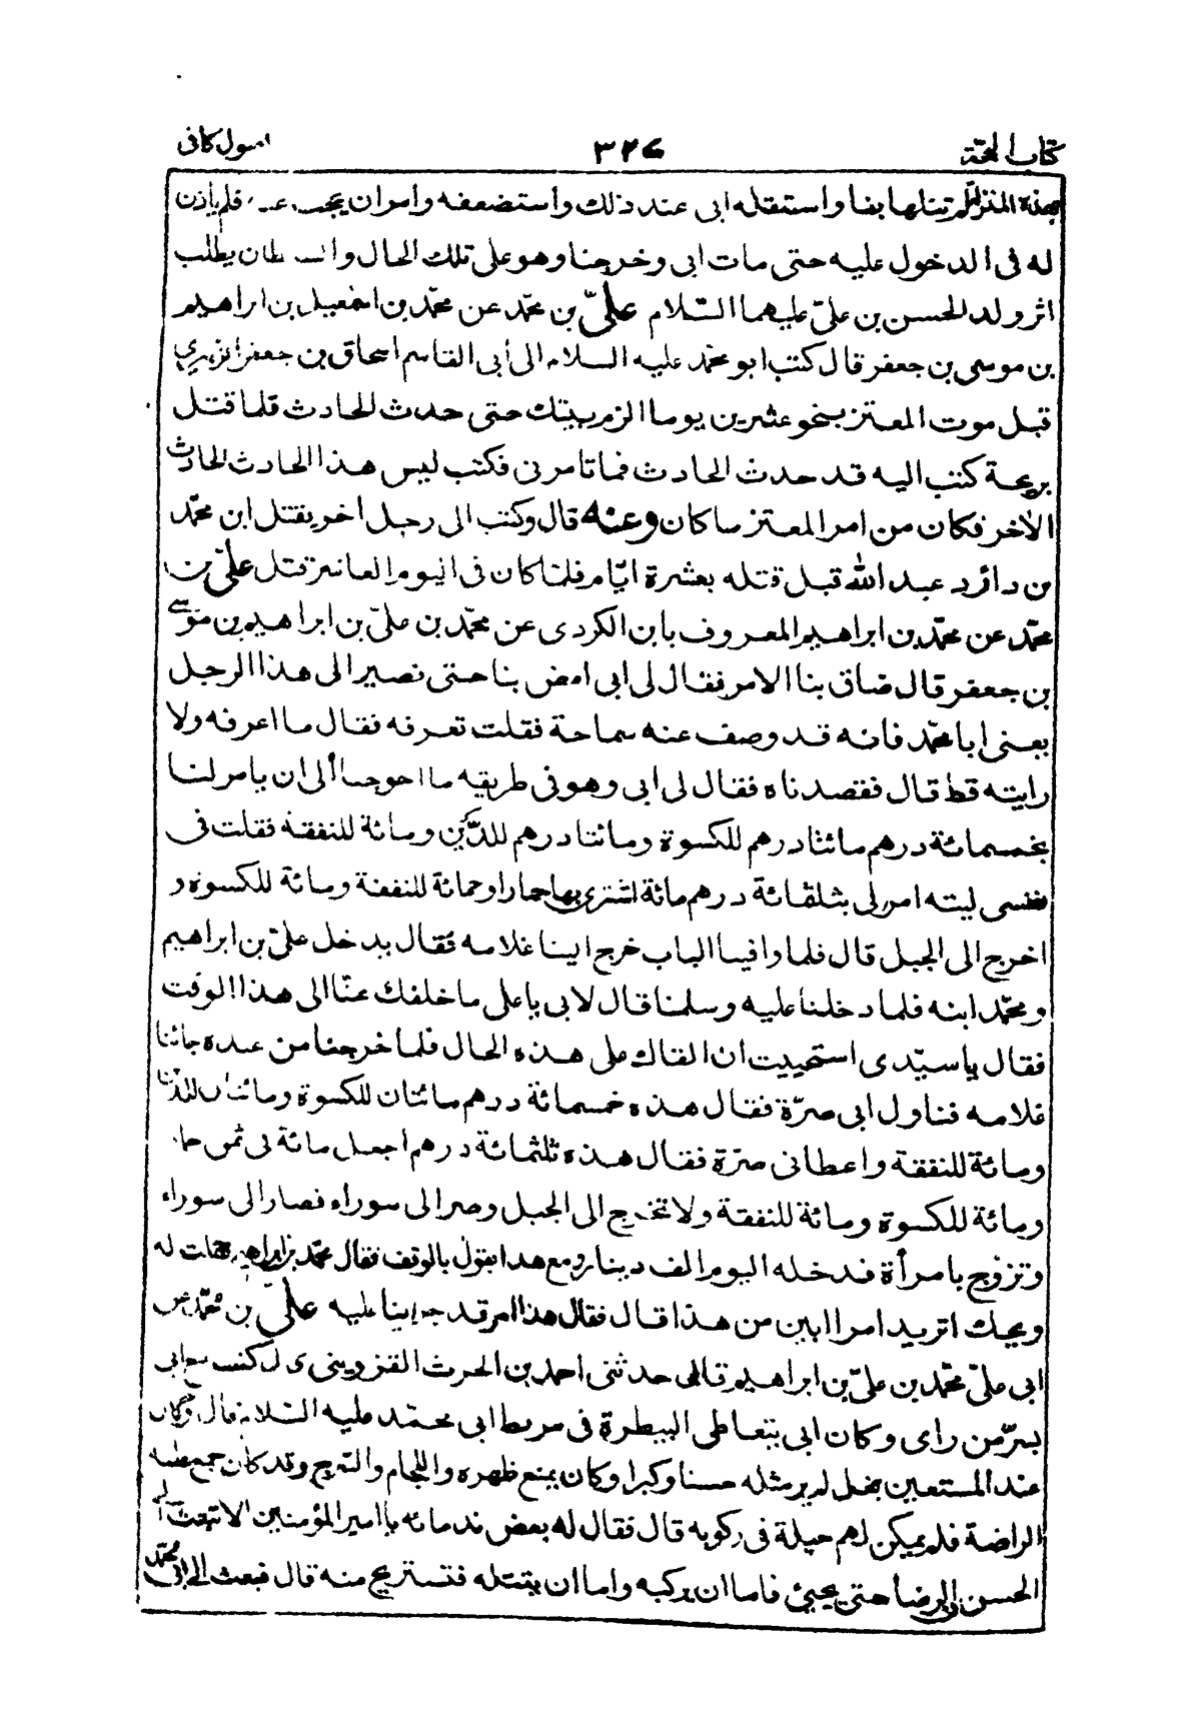 كتاب الحجة ٣٢٦ اصول كافى
بهذه المنزلة لم تنلها بفا واستقله ابى عند ذلك واستضعفه وامر ان يحجب عنه فلم ياذن
له فى الدخول عليه حتى مات ابى وخرجنا وهو على تلك الحال والسلطان يطلب
اثر ولد الحسن بن علىّ عليهما السّلام علىّ بن محمّد عن محمّد بن اسمعيل بن ابراهيم
بن موسى بن جعفر قال كتب ابو محمّد عليه السلام الى أبى القاسم اسحاق بن جعفر الزبيرى
قبل موت المعتز بنحو عشرين يوما الزم بيتك حتى حدث الحادث فلما قتل
بريحة كتب اليه قد حدث الحادث فما تامرنى فكتب ليس هذا الحادث الحادث
الاخر فكان من امر المعتز ما كان وعنه قال وكتب الى رجل اخر يقتل ابن محمّد
بن داود عبد الله قبل قتله بعشرة ايّام فلما كان فى اليوم العاشر قتل علىّ بن
محمّد عن محمّد بن ابراهيم المعروف بابن الكردى عن محمّد بن علىّ بن ابراهيم بن موسى
بن جعفر قال ضاق بنا الامر فقال لى ابى امض بنا حتى نصير الى هذا الرجل
يعنى ابا محمّد فانه قد وصف عنه سماحة فقلت تعرفه فقال ما اعرفه ولا
رايته قط قال فقصدناه فقال لى ابى وهو فى طريقه ما احوجنا ألى ان يامر لنا
بخمسمائة درهم مائتا درهم للكسوة ومائتا درهم للدَّين ومائة للنفقة فقلت فى
نفسى ليته امر لى بثلثمائة درهم مائة اشترى بها حمارا ومائة للنفقة ومائة للكسوة و
اخرج الى الجبل قال فلما وافينا الباب خرج الينا غلامه فقال يدخل علىّ بن ابراهيم
ومحمّد ابنه فلما دخلنا عليه وسلمنا قال لابى يا على ما خلفك عنّا الى هذا الوقت
فقال يا سيّدى استحييت ان القاك على هذه الحال فلما خرجنا من عنده جائنا
غلامه فناول ابى صرّة فقال هذه خمسمائة درهم مائتان للكسوة ومائتان للدّين
ومائة للنفقة واعطانى صرّة فقال هذه ثلثمائة درهم اجعل مائة فى ثمن حمار
ومائة للكسوة ومائة للنفقة ولا تخرج الى الجبل وصر الى سوراء فصار الى سوراء
وتزوج بامرأة فدخله اليوم الف دينار ومع هذا يقول بالوقف فقال محمّد بن ابراهيم فقلت له
ويحك اتريد امرا ابين من هذا قال فقال هذا امر قد جرينا عليه علىّ بن محمّد عن
ابى علىّ محمّد بن علىّ بن ابراهيم قال حدثنى احمد بن الحرث القزوينى قال كنت مع ابى
بسرّ من راى وكان ابى يتعاطى البيطرة فى مربط ابى محمّد عليه السّلام قال وكان
عند المستعين بغل لم ير مثله حسنا وكبرا وكان يمنع ظهره واللجام والسّرج وقد كان جمع عليه
الراضة فلم يمكن لهم حيلة فى ركوبه قال فقال له بعض ندمائه يا امير المؤمنين الا تبعث الى
الحسن بن الرضا حتى يجيئ فاما ان يركبه واما ان يقتله فتستريح منه قال فبعث الى ابى محمّد